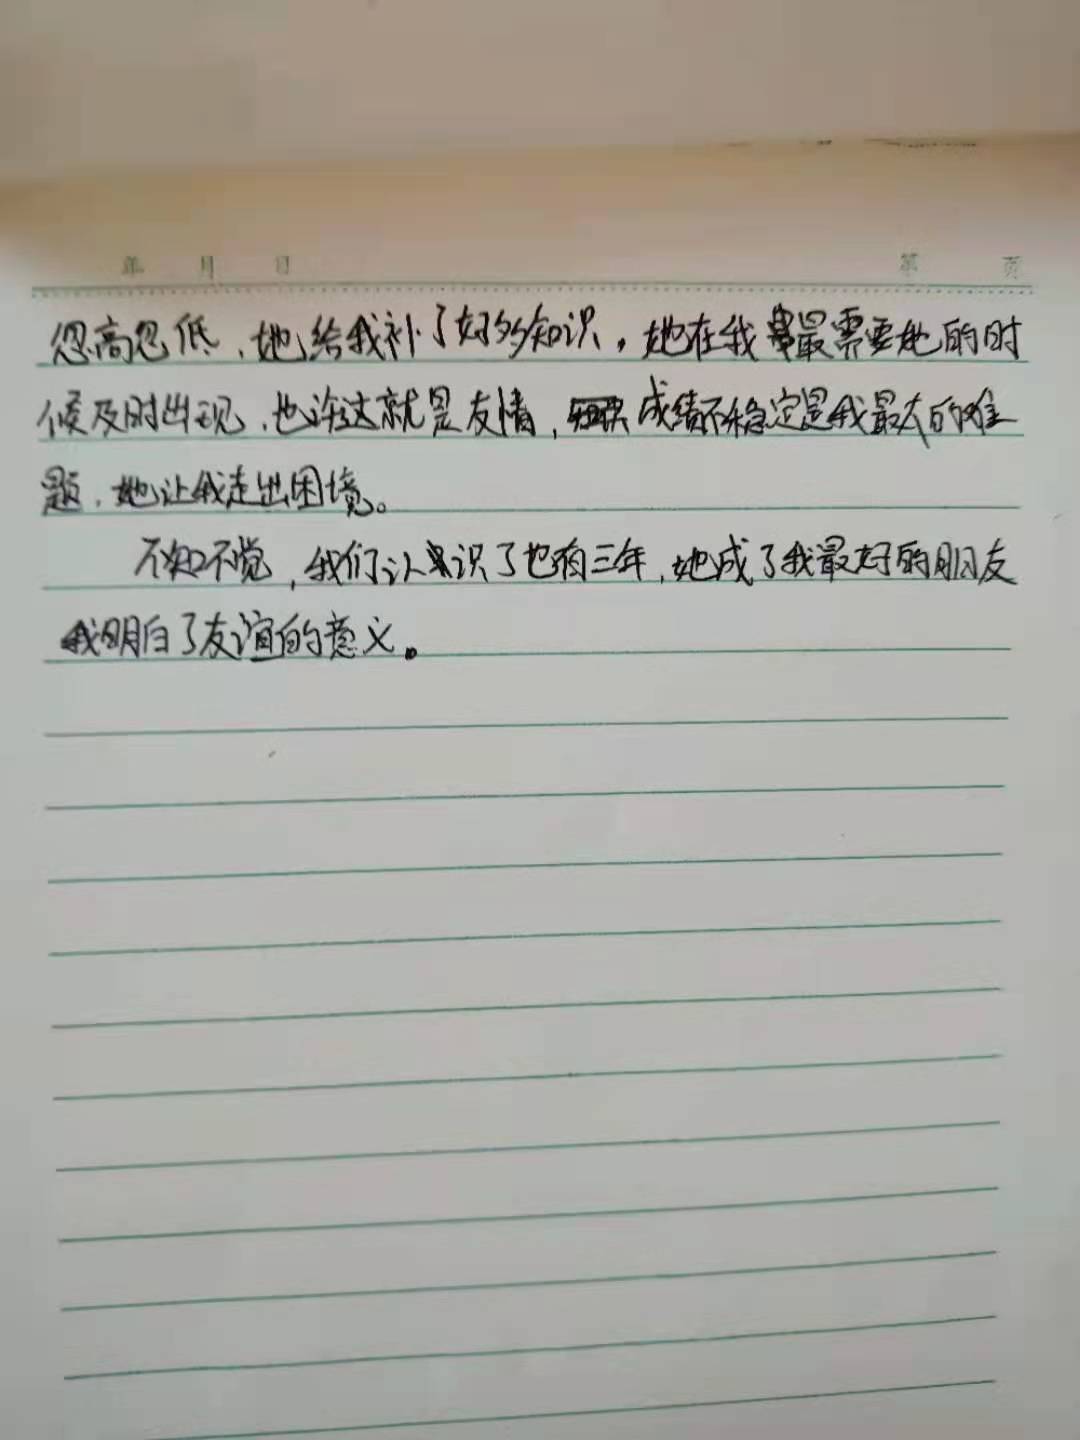 年 月 日 第 页
忽高忽低，她给我补了好多知识，她在我最需要她的时
候及时出现，也许这就是友情，成绩不稳定是我最大的难
题，她让我走出困境。
不知不觉，我们认识了也有三年，她成了我最好的朋友
我明白了友谊的意义。